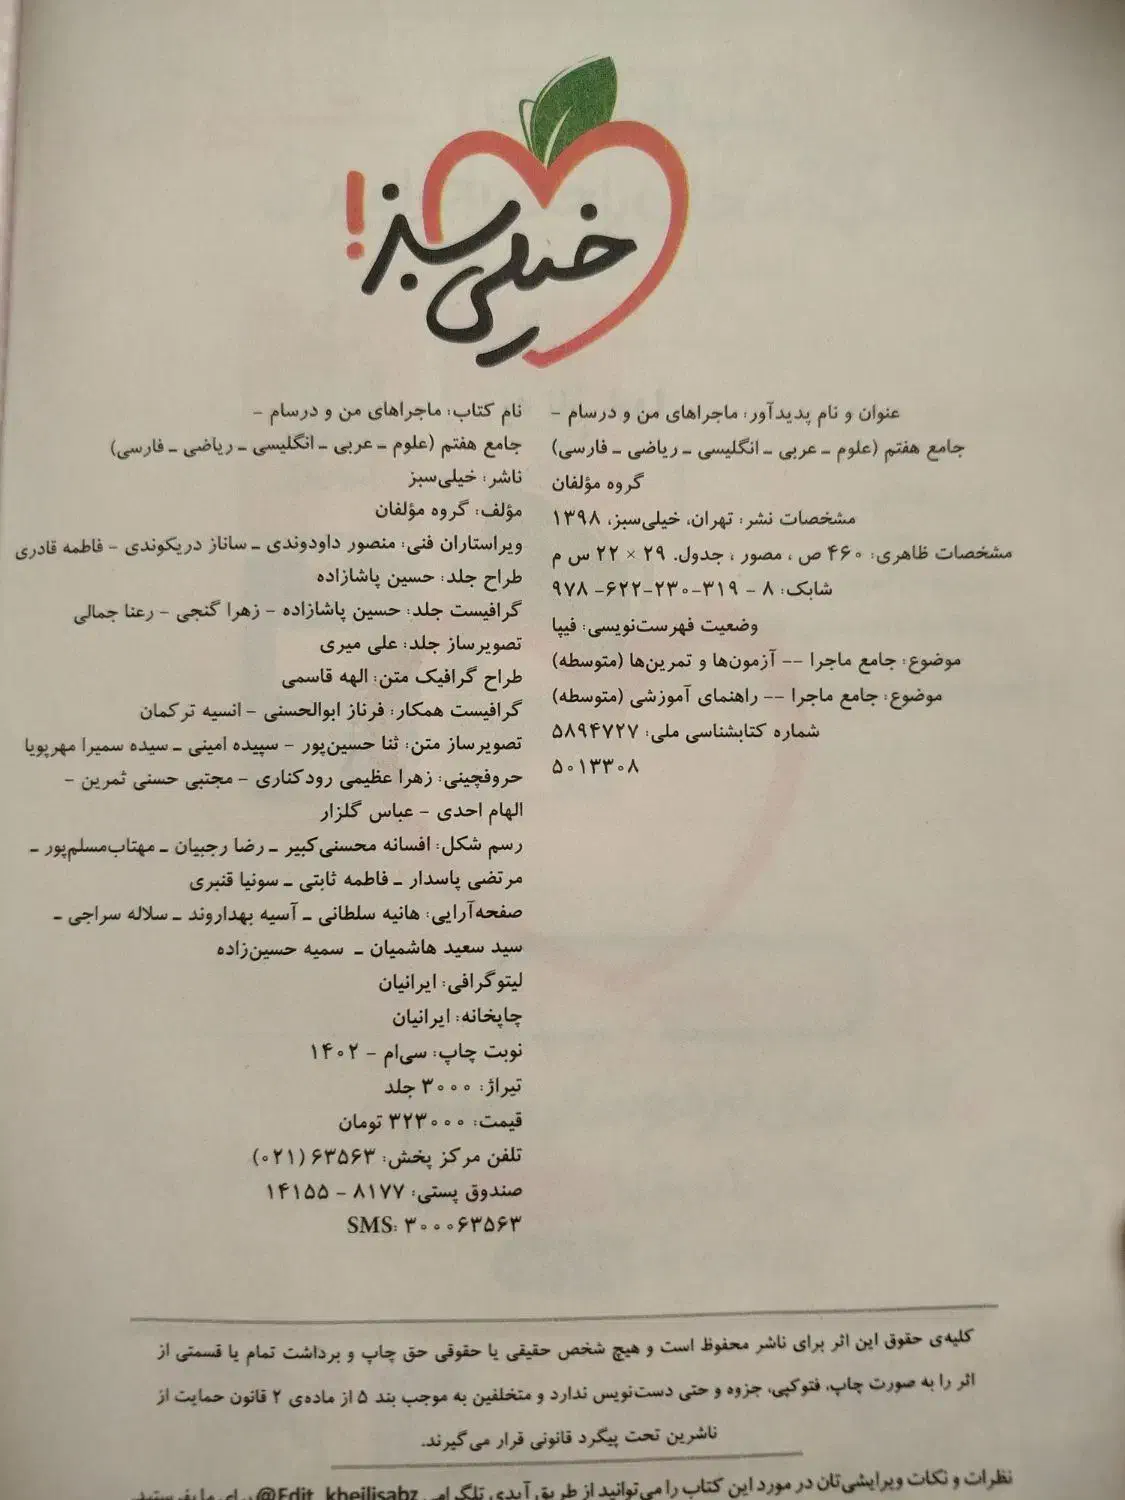 خیلی سبز!
عنوان و نام پدیدآور: ماجراهای من و درسام -
جامع هفتم (علوم ـ عربی ـ انگلیسی ـ ریاضی ـ فارسی)
گروه مؤلفان
مشخصات نشر: تهران، خیلی‌سبز، ۱۳۹۸
مشخصات ظاهری: ۴۶۰ ص ، مصور ، جدول. ۲۹ × ۲۲ س م
شابک: ۸ - ۳۱۹-۲۳۰-۶۲۲- ۹۷۸
وضعیت فهرست‌نویسی: فیپا
موضوع: جامع ماجرا -- آزمون‌ها و تمرین‌ها (متوسطه)
موضوع: جامع ماجرا -- راهنمای آموزشی (متوسطه)
شماره کتابشناسی ملی: ۵۸۹۴۷۲۷
۵۰۱۳۳۰۸
نام کتاب: ماجراهای من و درسام -
جامع هفتم (علوم ـ عربی ـ انگلیسی ـ ریاضی ـ فارسی)
ناشر: خیلی‌سبز
مؤلف: گروه مؤلفان
ویراستاران فنی: منصور داودوندی ـ ساناز دریکوندی - فاطمه قادری
طراح جلد: حسین پاشازاده
گرافیست جلد: حسین پاشازاده - زهرا گنجی - رعنا جمالی
تصویرساز جلد: علی میری
طراح گرافیک متن: الهه قاسمی
گرافیست همکار: فرناز ابوالحسنی - انسیه ترکمان
تصویرساز متن: ثنا حسین‌پور - سپیده امینی ـ سیده سمیرا مهرپویا
حروفچینی: زهرا عظیمی رودکناری - مجتبی حسنی ثمرین -
الهام احدی - عباس گلزار
رسم شکل: افسانه محسنی‌کبیر ـ رضا رجبیان ـ مهتاب‌مسلم‌پور ـ
مرتضی پاسدار ـ فاطمه ثابتی ـ سونیا قنبری
صفحه‌آرایی: هانیه سلطانی ـ آسیه بهداروند ـ سلاله سراجی ـ
سید سعید هاشمیان ـ سمیه حسین‌زاده
لیتوگرافی: ایرانیان
چاپخانه: ایرانیان
نوبت چاپ: سی‌ام - ۱۴۰۲
تیراژ: ۳۰۰۰ جلد
قیمت: ۳۲۳۰۰۰ تومان
تلفن مرکز پخش: ۶۳۵۶۳ (۰۲۱)
صندوق پستی: ۸۱۷۷ - ۱۴۱۵۵
SMS: ۳۰۰۰۶۳۵۶۳
کلیه‌ی حقوق این اثر برای ناشر محفوظ است و هیچ شخص حقیقی یا حقوقی حق چاپ و برداشت تمام یا قسمتی از
اثر را به صورت چاپ، فتوکپی، جزوه و حتی دست‌نویس ندارد و متخلفین به موجب بند ۵ از ماده‌ی ۲ قانون حمایت از
ناشرین تحت پیگرد قانونی قرار می‌گیرند.
نظرات و نکات ویرایشی‌تان در مورد این کتاب را می‌توانید از طریق آیدی تلگرامی @Edit_kheilisabz برای ما بفرستید.